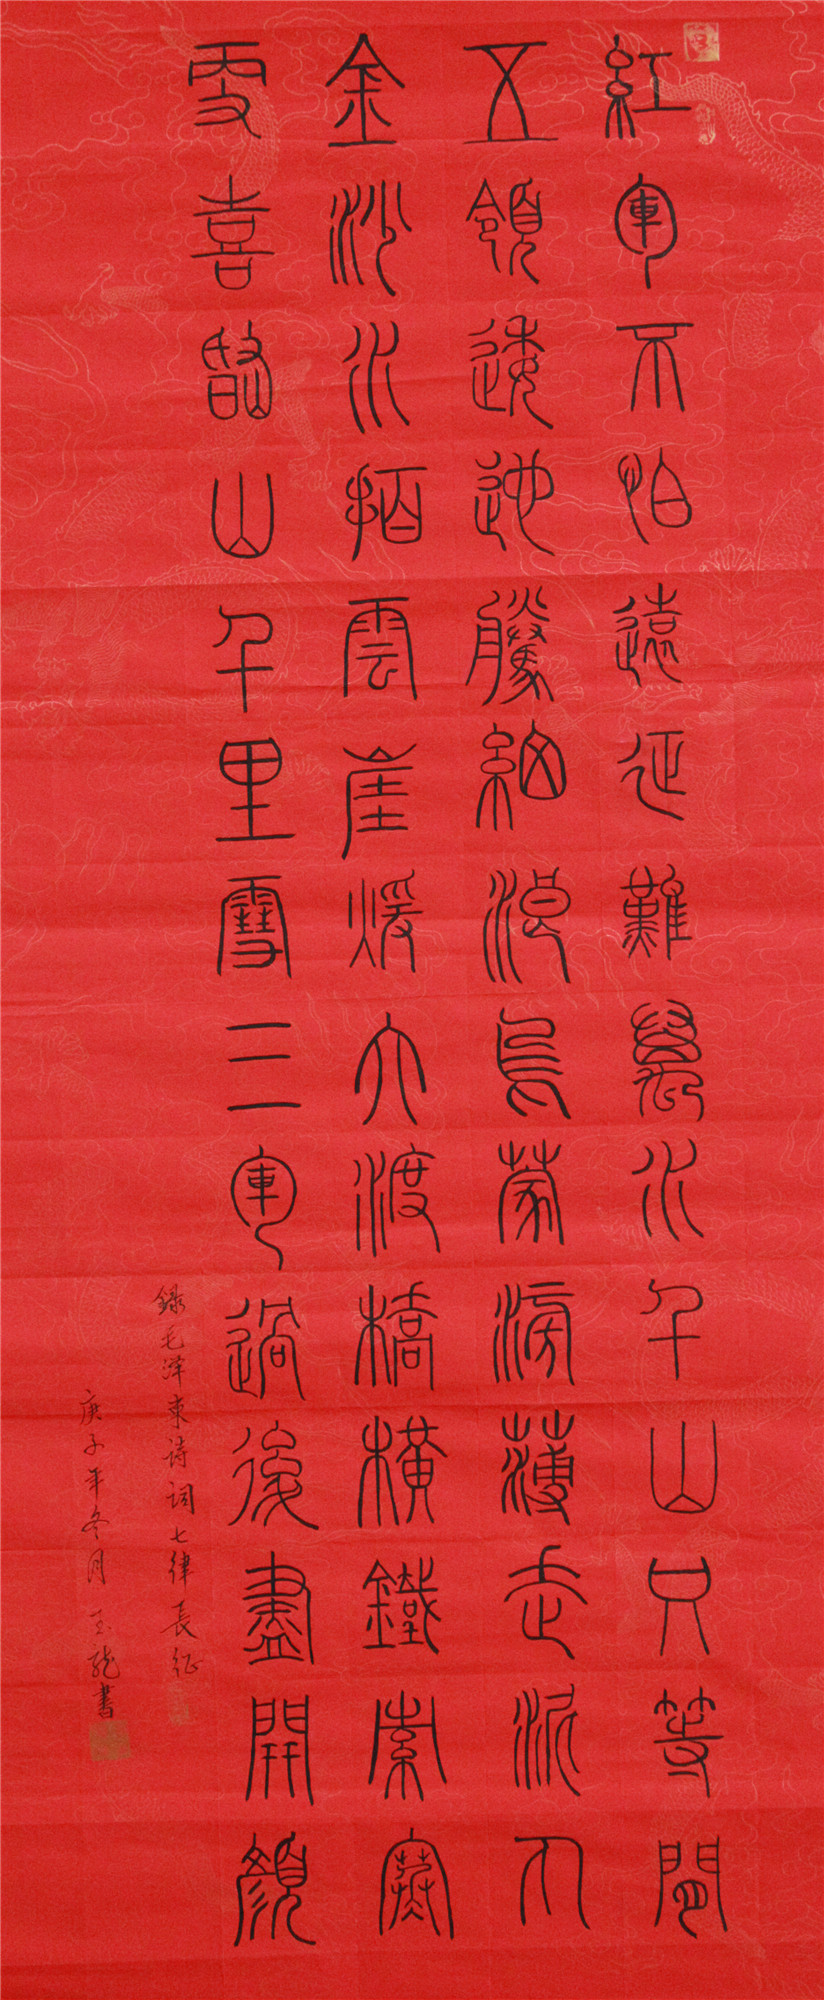 紅軍不怕遠征難萬水千山只等閒
五領逶迤騰細浪烏蒙滂薄走泥丸
金沙水拍雲崖煖大渡橋橫鐵索寒
更喜岷山千里雪三軍過後盡開顏
録毛泽東诗词七律長征
庚子年冬月 玉龍書